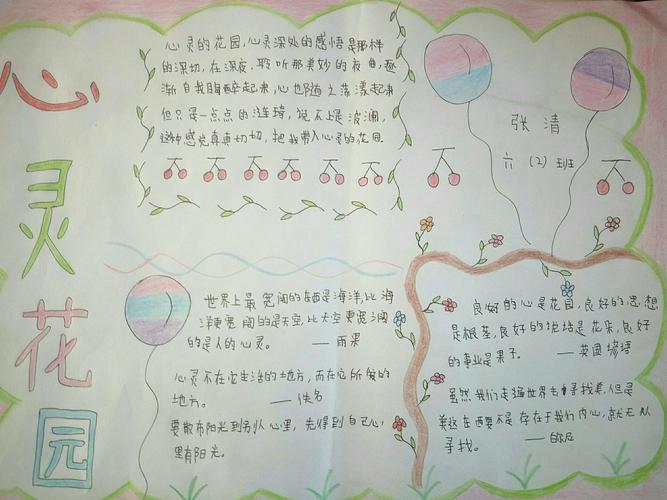 心灵花园
心灵的花园,心灵深处的感悟是那样
的深切,在深夜,聆听那美妙的夜曲,逐
渐自我陶醉起来,心也随之荡漾起来
但只是一点点的涟漪,说不上是波澜,
这种感觉真真切切,把我带入心灵的花园.
张清
六(2)班
世界上最宽阔的东西是海洋,比海
洋更宽阔的是天空,比天空更宽阔
的是人的心灵。——雨果
心灵不在它生活的地方,而在它所爱的
地方。——佚名
要散布阳光到别人心里,先得到自己心
里有阳光。
良好的心是花园,良好的思想
是根茎,良好的说话是花朵,良好
的事业是果子。——英国谚语
虽然我们走遍世界去寻找美,但是
美这东西要不是存在于我们内心,就无从
寻找。